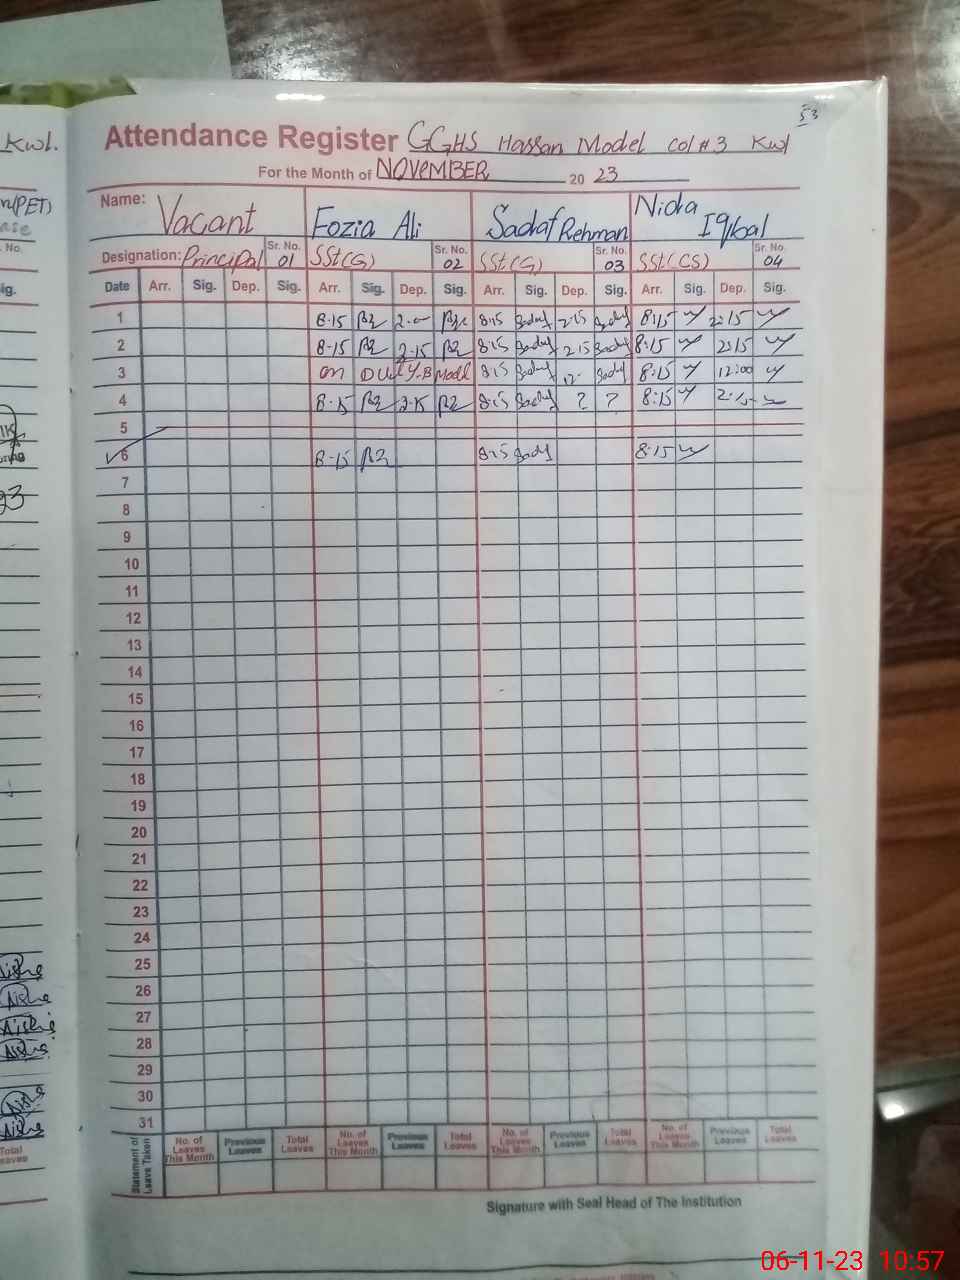 53
Kwl.
Attendance Register GGHS Hassan Model Col # 3 Kwl
For the Month of NOVEMBER 20 23
(PET)
Name: Vacant Fozia Ali Sadaf Rehman Nida Iqbal
No.
Designation: Principal Sr. No. 01 SSt(G) Sr. No. 02 SSt(G) Sr. No. 03 SSt(CS) Sr. No. 04
ig.
Date Arr. Sig. Dep. Sig. Arr. Sig. Dep. Sig. Arr. Sig. Dep. Sig. Arr. Sig. Dep. Sig.
1 8-15 8:15 2-15 8:15 2:15
2 8-15 2-15 8:15 2:15 8:15 2:15
3 on Duty 8:15 12- 8:15 12:00
4 8-15 2-15 8:15 ? ? 8:15
5
6 8-15 8:15 8:15
7
8
9
10
11
12
13
14
15
16
17
18
19
20
21
22
23
24
25
26
27
28
29
30
31
Aishe
Aishe
Aishe
Aishe
Aishe
Aishe
Total
Leaves
Statement of Leave Taken
No. of Leaves This Month Previous Leaves Total Leaves No. of Leaves This Month Previous Leaves Total Leaves No. of Leaves This Month Previous Leaves Total Leaves No. of Leaves This Month Previous Leaves Total Leaves
Signature with Seal Head of The Institution
06-11-23 10:57